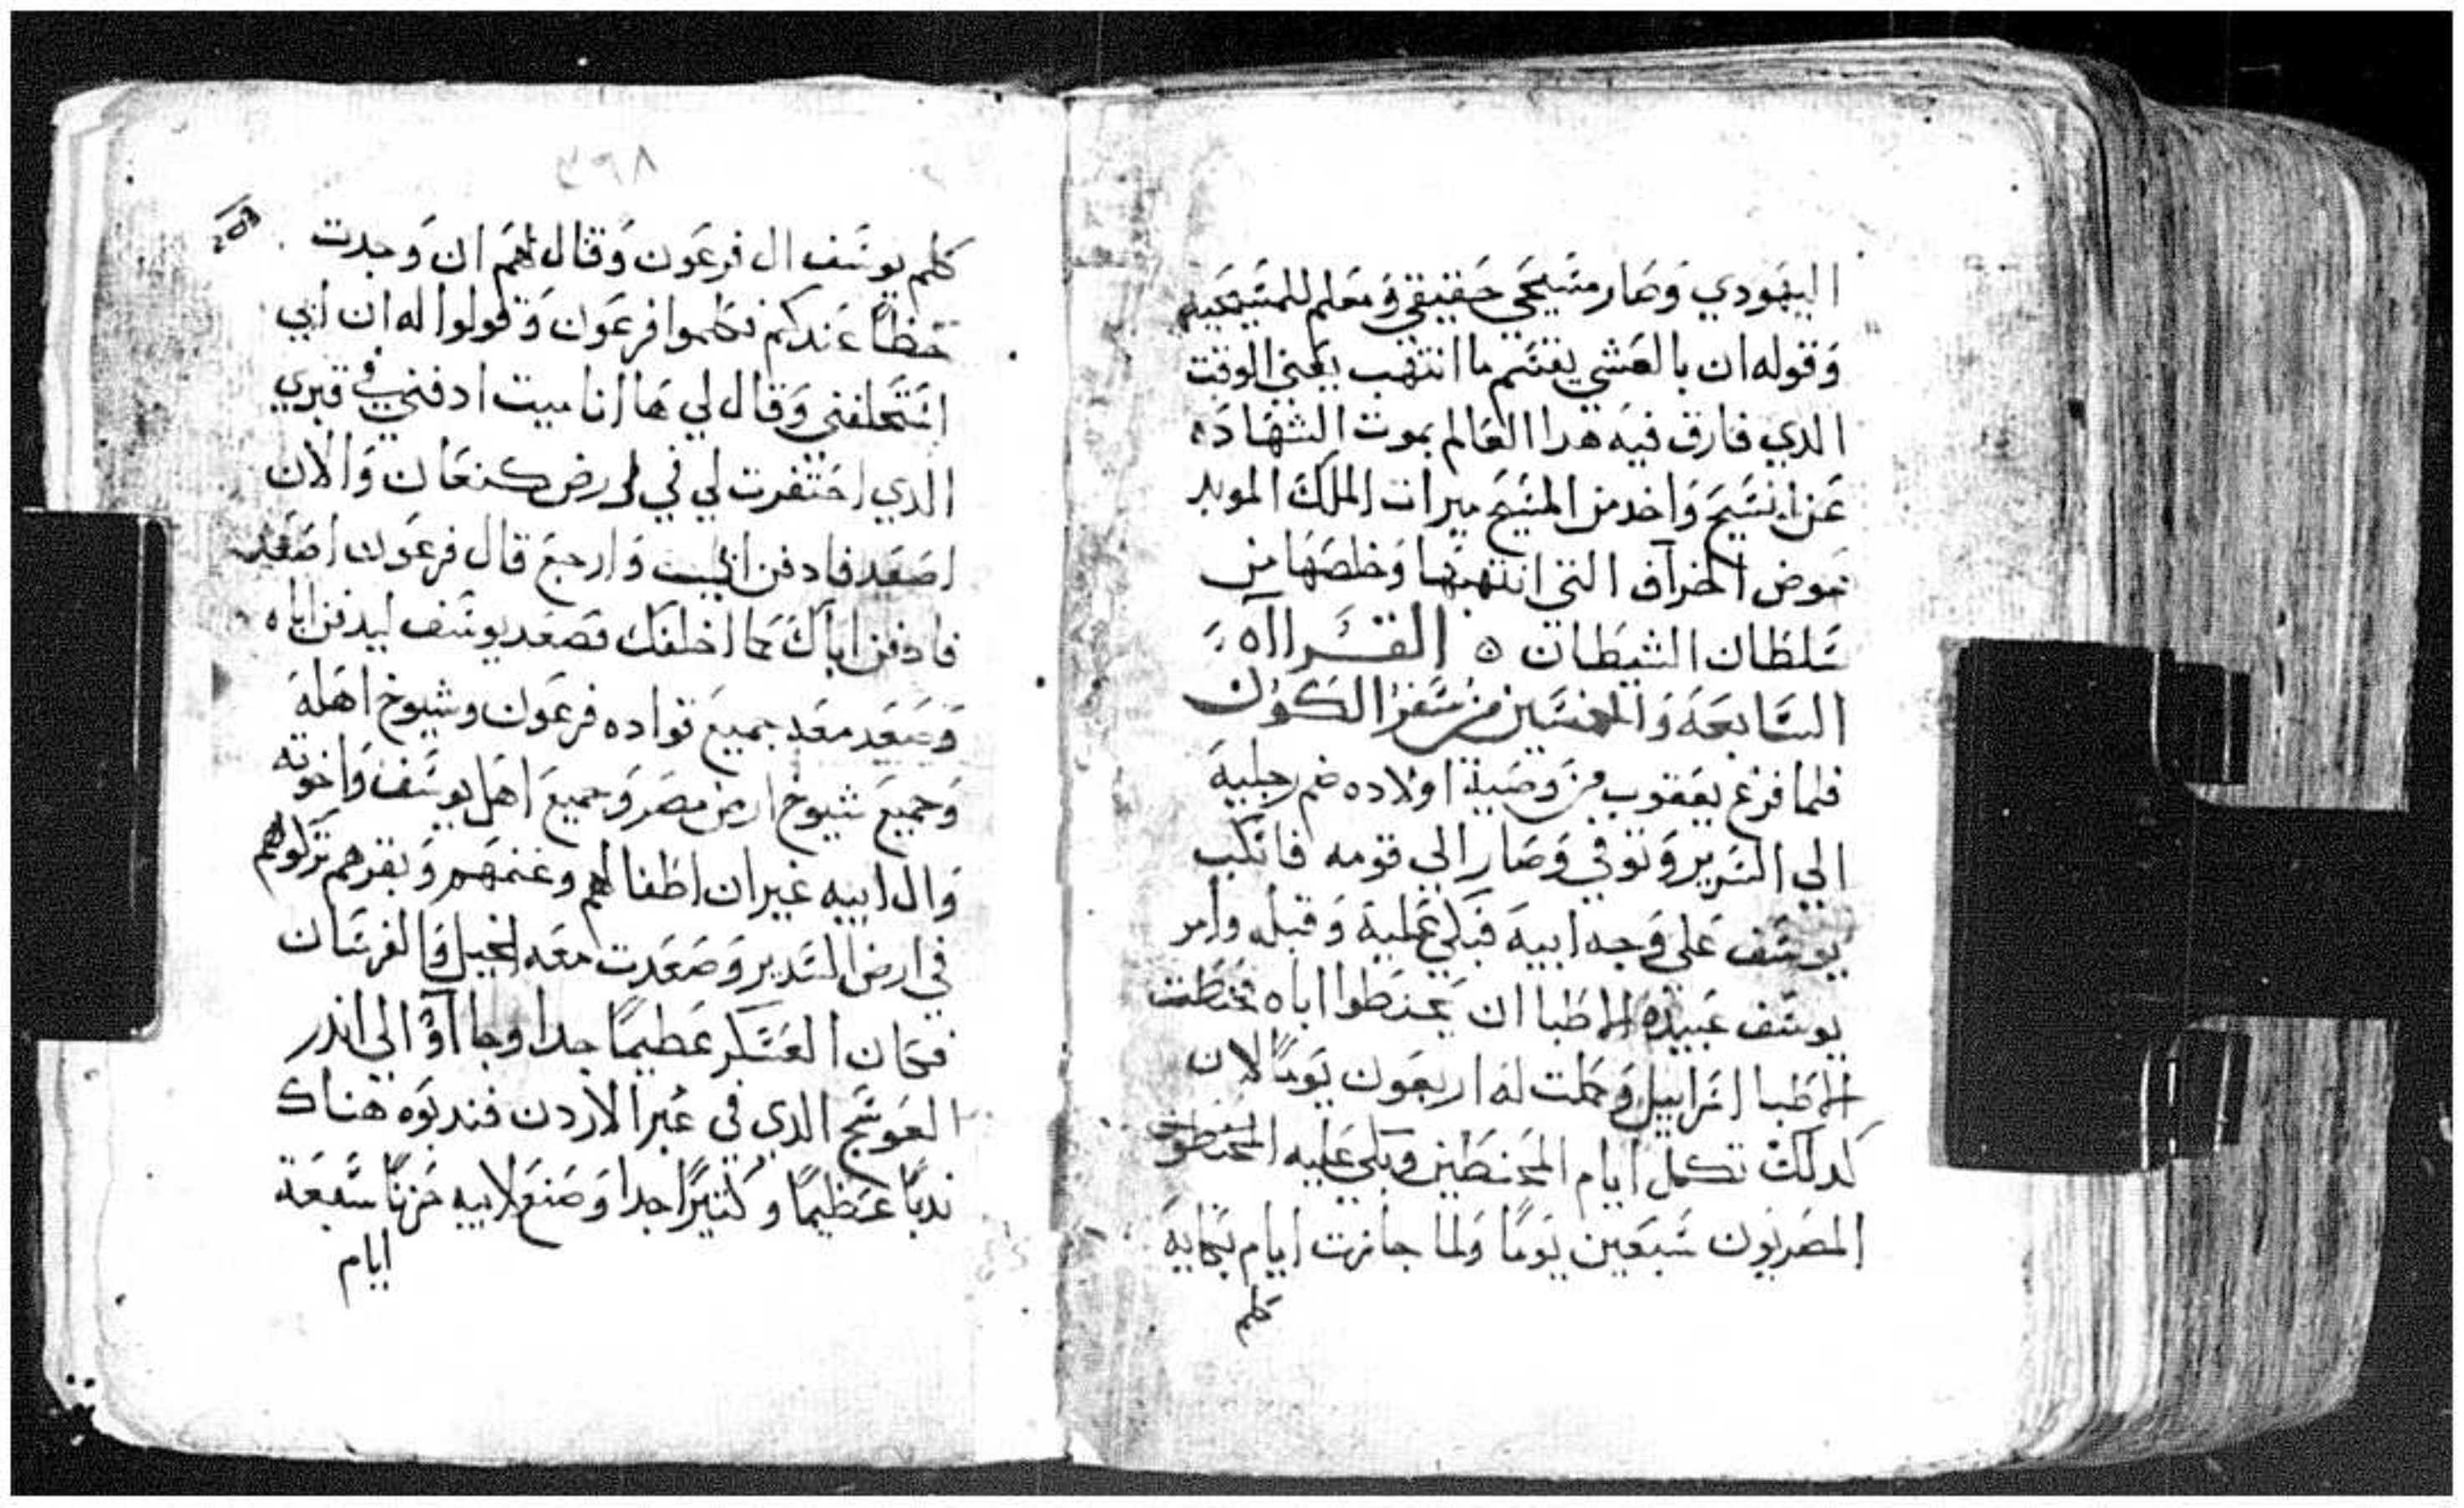 اليهودي وصار مسيحي حقيقي ومعلم للمسيحيه
وقوله ان بالعشي يقسم ما انتهب يعني الوقت
الدي فارق فيه هدا العالم بموت الشهاده
عن المسيح واخد من المسيح ميرات الملك الموبد
عوض الخراف التي انتهبها وخلصها من
سلطان الشيطان ه القراااه
السابعه والخمسين من سفر الكون
فلما فرغ يعقوب من وصية اولاده ضم رجليه
الي السرير وتوفي وصار الي قومه فانكب
يوسف علي وجه ابيه فبكي عليه وقبله وامر
يوسف عبيده الاطبا ان يحنطوا اباه فحنطت
الاطبا اسراييل وكملت له اربعون يوما لان
كدلك تكمل ايام المحنطين وبكي عليه
المصريون سبعين يوما ولما جازت ايام بكايه
كلم
٨٣٤
203
كلم يوسف ال فرعون وقال لهم ان وجدت
حظا عندكم فكلموا فرعون وقولوا له ان ابي
استحلفني وقال لي ها انا ميت ادفني في قبري
الدي احتفرت لي في ارض كنعان والان
اصعد فادفن ابي وارجع قال فرعون اصعد
فادفن اباك كما احلفك فصعد يوسف ليدفن اباه
وصعد معه جميع قواده فرعون وشيوخ اهله
وجميع شيوخ ارض مصر وجميع اهل يوسف واخوته
وال ابيه غير ان اطفالهم وغنمهم وبقرهم تركوهم
في ارض السدير وصعدت معه الخيل والفرسان
فكان العسكر عظيما جدا وجااوا الي اندر
العوسج الدي في عبر الاردن فندبوه هناك
ندبا عظيما وكثيرا جدا وصنع لابيه حزنا سبعة
ايام